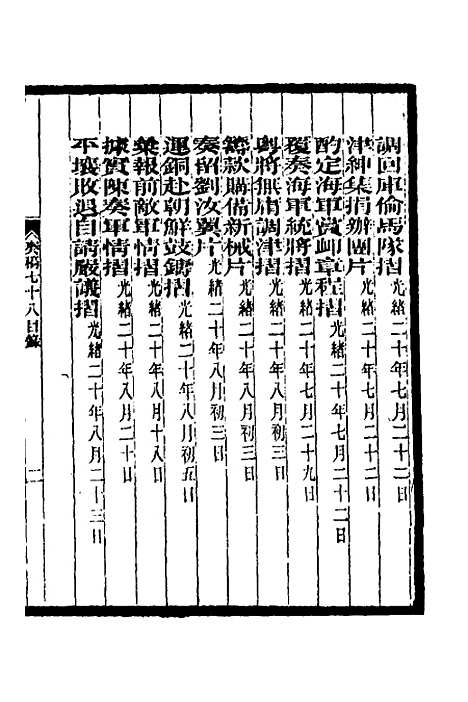 調回庫倫馬隊摺光緒二十年七月二十二日
津紳集捐辦團片光緒二十年七月二十二日
酌定海軍賞卹章程摺光緒二十年七月二十二日
覆奏海軍統將摺光緒二十年七月二十九日
粵將無庸調津摺光緒二十年八月初三日
籌款購備新械片光緒二十年八月初三日
奏留劉汝翼片光緒二十年八月初三日
運銅赴朝鮮鼓鑄摺光緒二十年八月初五日
彙報前敵軍情摺光緒二十年八月十八日
據實陳奏軍情摺光緒二十年八月二十日
平壤敗退自請嚴議摺光緒二十年八月二十三日
奏稿七十八目錄 二